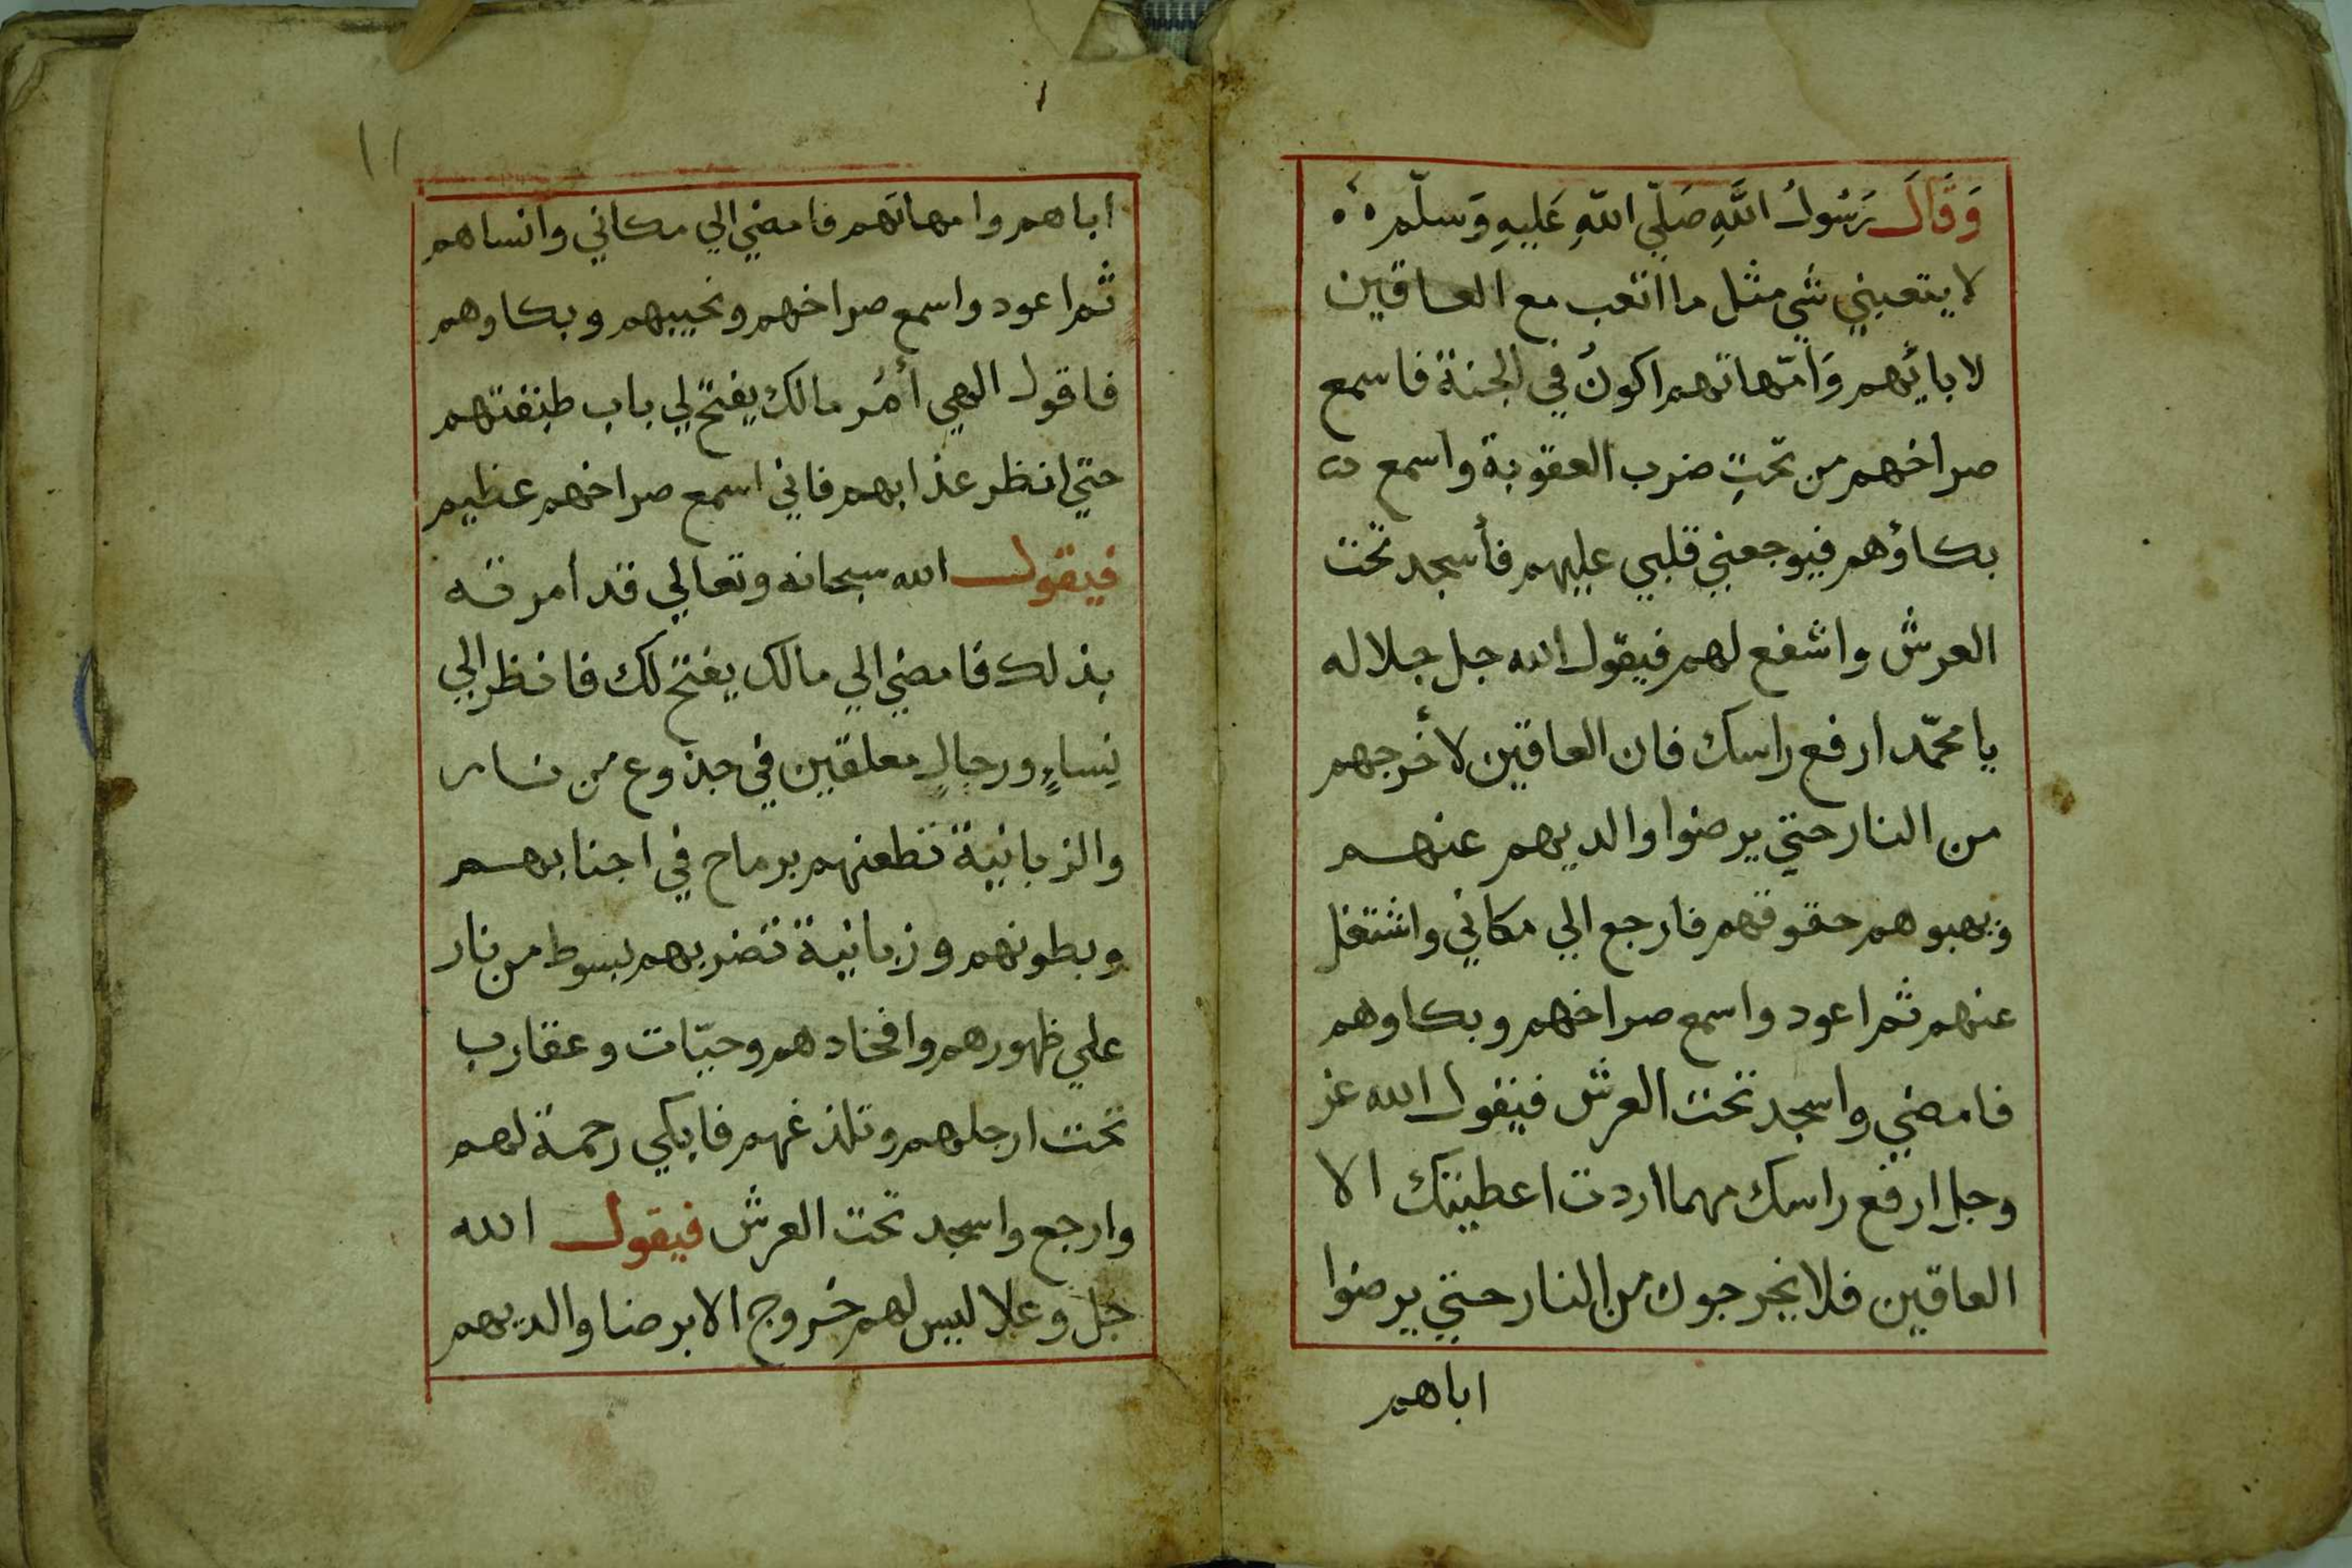 وَقَالَ رَسُولُ اللَّهِ صَلّي اللّهِ عَلَيهِ وَسلّم
لا يتعبني شي مثل ما اتعب مع العاقين
لابائهم وَامّهاتهم اكونُ في الجنة فاسمع
صراخهم من تحتِ ضرب العقوبة واسمع
بكاؤهم فيوجعني قلبي عليهم فأسجد تحت
العرش واشفع لهم فيقول الله جل جلاله
يا محمّد ارفع راسك فان العاقين لأخرجهم
من النار حتي يرضوا والديهم عنهم
ويهبوهم حقوقهم فارجع الي مكاني واشتغل
عنهم ثم اعود واسمع صراخهم وبكاوهم
فامضي واسجد تحت العرش فيقول الله عز
وجل ارفع راسك مهما اردت اعطيتك الا
العاقين فلا يخرجون من النار حتي يرضوا
اباهم
١١
اباهم وامهاتهم فامضي الي مكاني وانساهم
ثم اعود واسمع صراخهم ونحيبهم وبكاوهم
فاقول الهي أمُر مالك يفتح لي باب طبقتهم
حتي انظر عذابهم فاني اسمع صراخهم عظيم
فيقول الله سبحانه وتعالي قد امرته
بذلك فامضي الي مالك يفتح لك فانظر الي
نِساءٍ ورجالٍ معلقين في جذوع من نار
والزبانية تطعنهم برماح في اجنابهم
وبطونهم وزبانية تضربهم بسوط من نار
علي ظهورهم وافخادهم وحيّات وعقارب
تحت ارجلهم وتلذغهم فابكي رحمة لهم
وارجع واسجد تحت العرش فيقول الله
جل وعلا ليس لهم خروج الا برضا والديهم